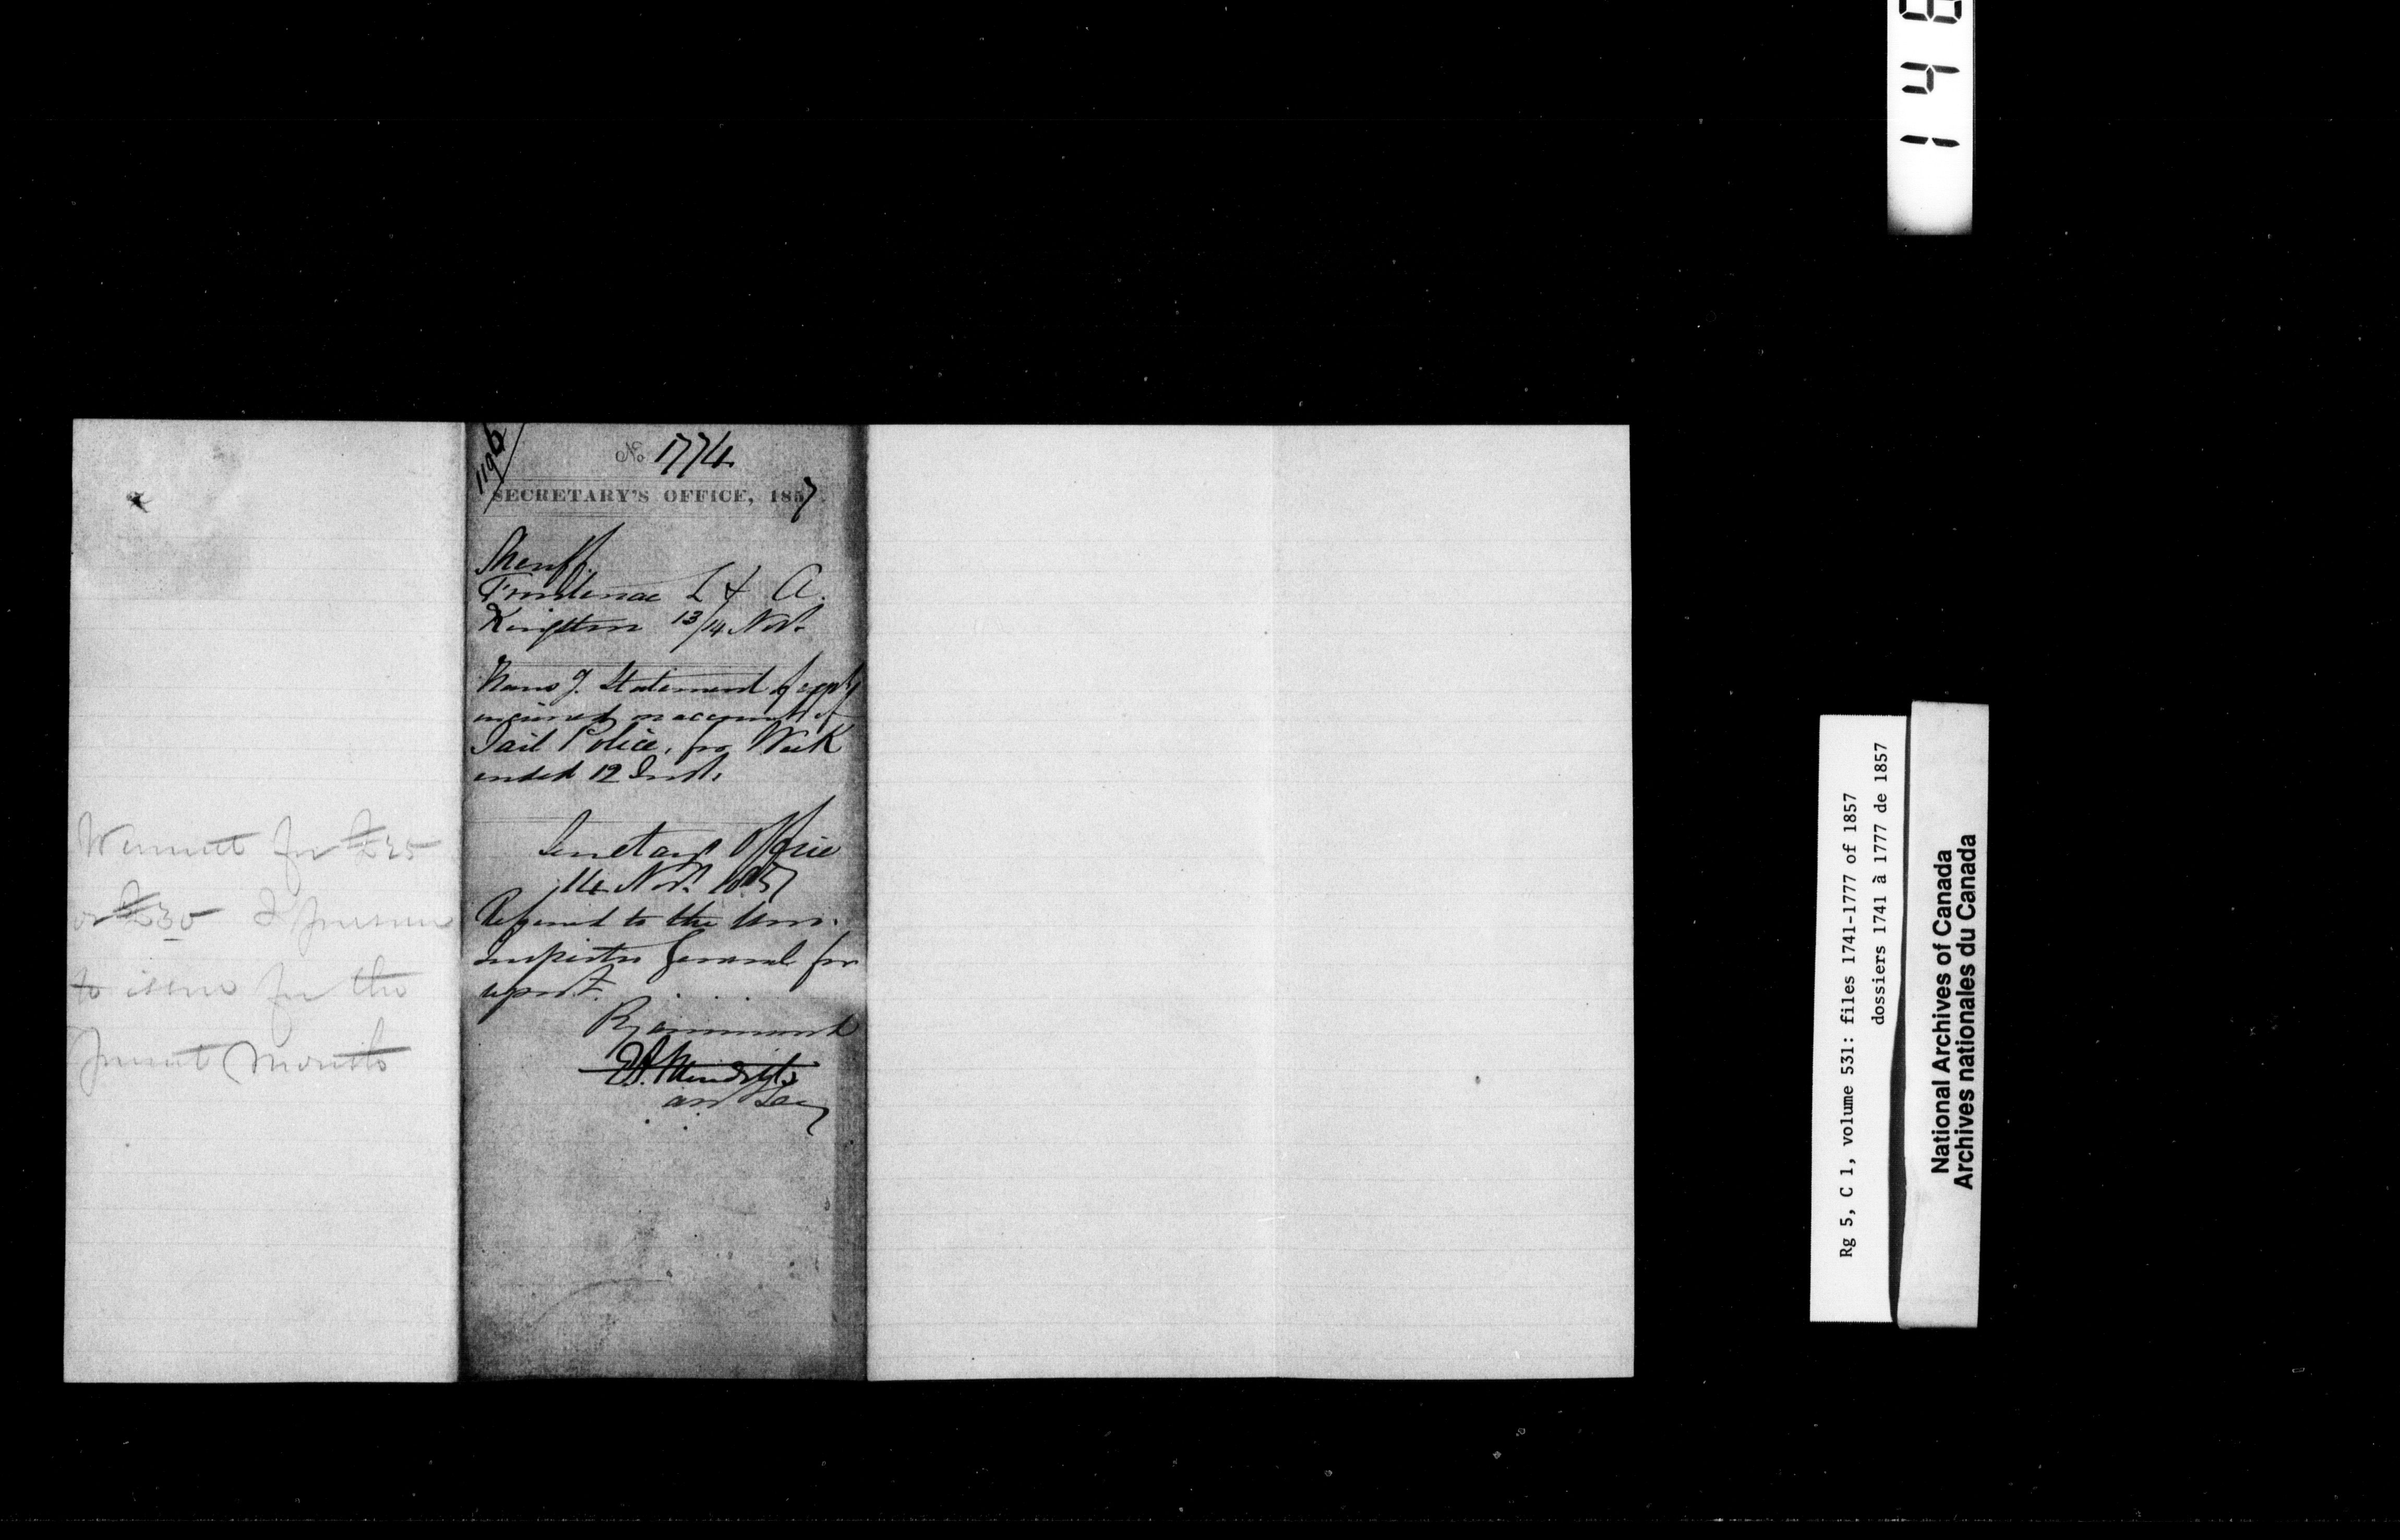 148
1196
No 1774
SECRETARY'S OFFICE, 1857.
Sheriff
Frontenac L & A.
Kingston 13/14 Nov.
Trans g. Statement of exps
incurred on account of
Jail Police, for Week
ended 12 Inst.
Secretarys Office
14 Nov. 1857
Referred to the Hon.
Inspector General for
report.
By command
E A Meredith
ass Secy
Warrant for £25
or £30 I presume
to issue for the
present month
Rg 5, C 1, volume 531: files 1741-1777 of 1857
dossiers 1741 à 1777 de 1857
National Archives of Canada
Archives nationales du Canada